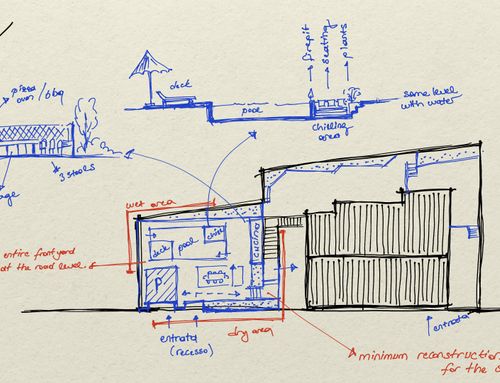 pizza
oven / bbq
3 stools
age
deck
pool
firepit
seating
plants
chilling
area
same level
with water
wet area
deck
pool
chill
P
cucina
entire frontyard
at the road level
entrata
(recesso)
dry area
entrata
minimum reconstruction
for the